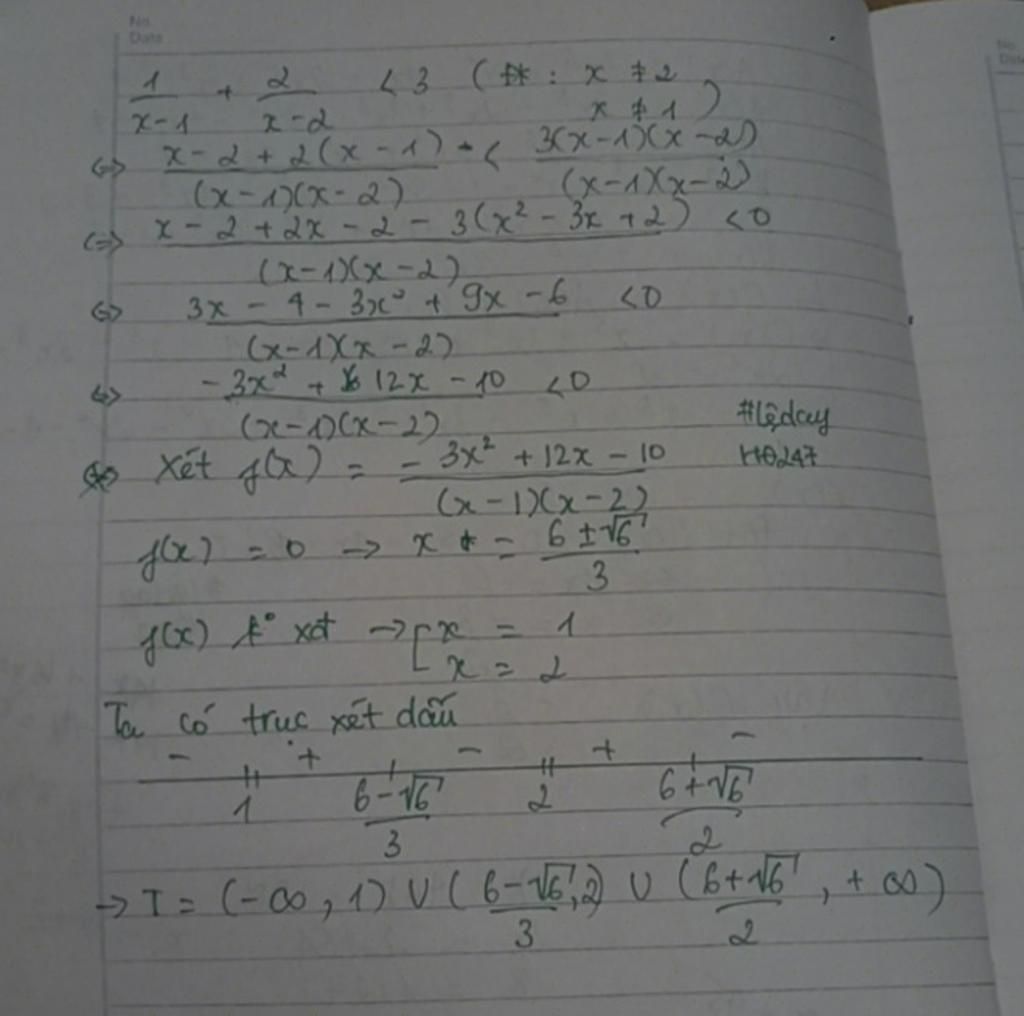 No.
Date
1/(x-1) + 2/(x-2) < 3 ( : x ≠ 2
x ≠ 1 )
<=> (x-2+2(x-1))/((x-1)(x-2)) < 3(x-1)(x-2)/((x-1)(x-2))
<=> (x-2+2x-2-3(x²-3x+2))/((x-1)(x-2)) < 0
<=> (3x-4-3x²+9x-6)/((x-1)(x-2)) < 0
<=> (-3x²+12x-10)/((x-1)(x-2)) < 0
#lệdayH0247
Xét f(x) = (-3x²+12x-10)/((x-1)(x-2))
f(x) = 0 → x = (6±√6)/3
f(x) k° xđ → [ x = 1
x = 2
Ta có trục xét dấu
- + - + -
1 (6-√6)/3 2 (6+√6)/2
→ T = (-∞, 1) ∪ ((6-√6)/3, 2) ∪ ((6+√6)/2, +∞)
No.
Date